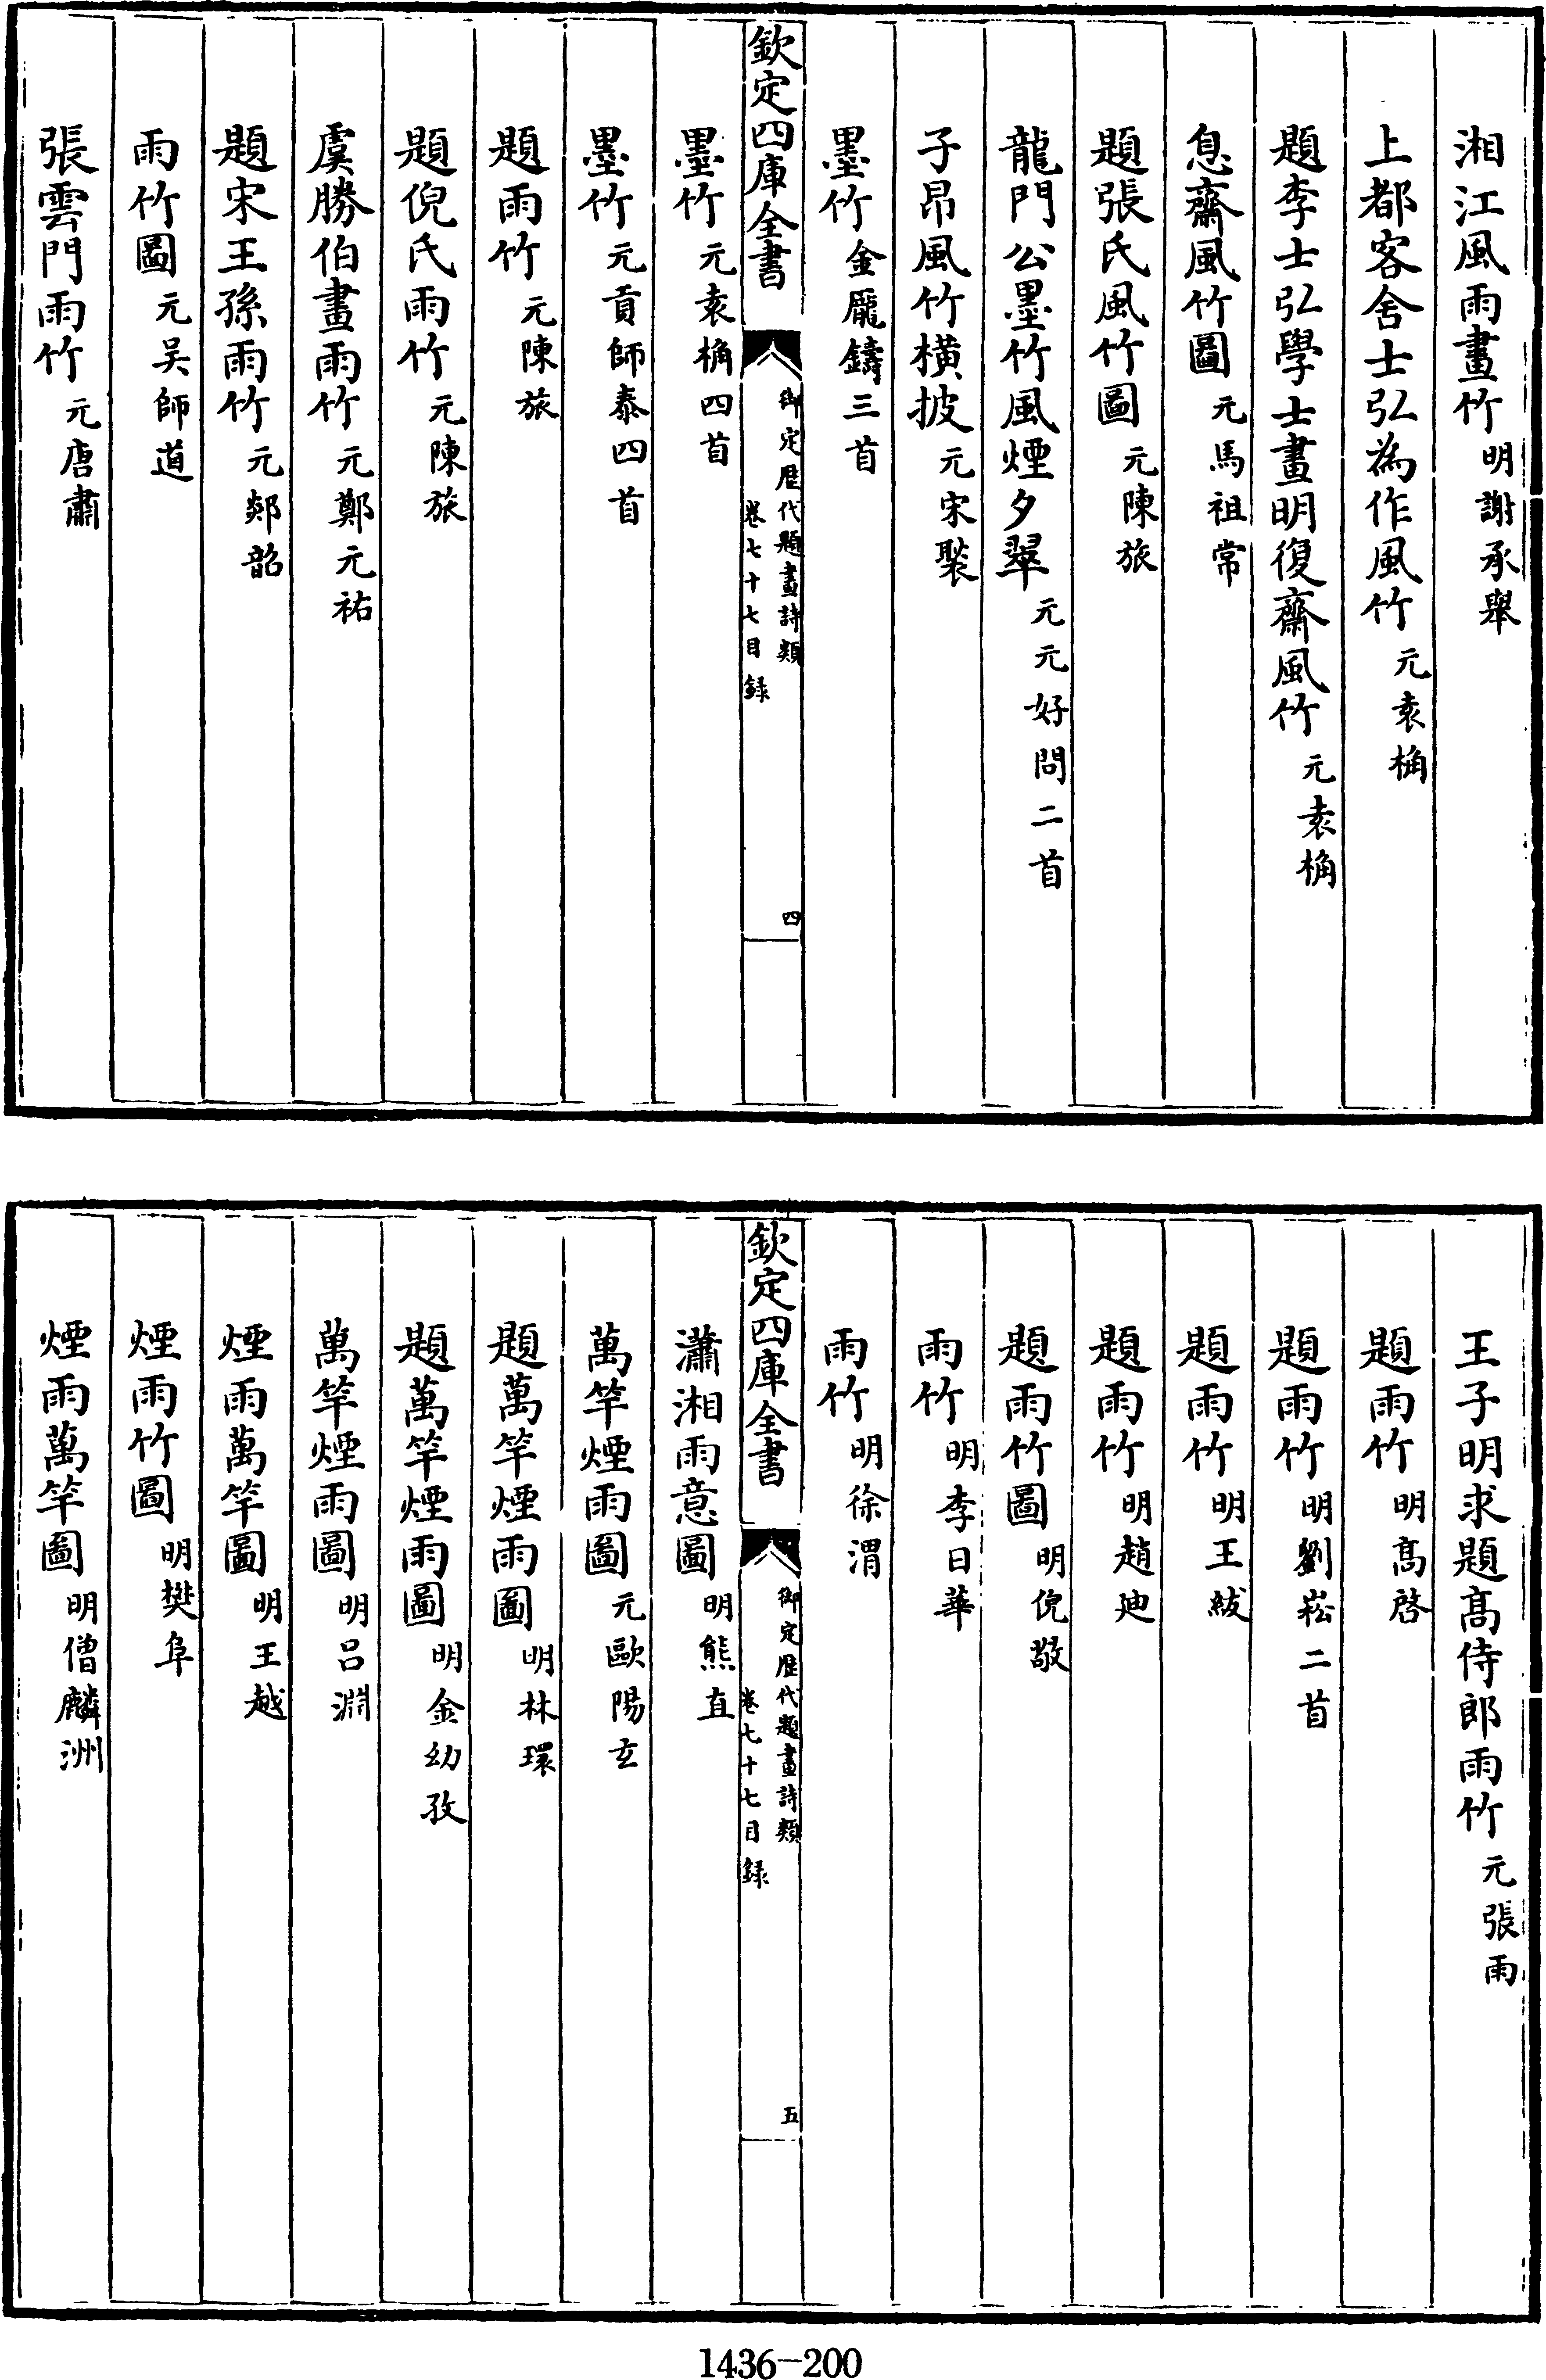 湘江風雨畫竹明謝承舉
上都客舍士弘為作風竹元袁桷
題李士弘學士畫明復齋風竹元袁桷
息齋風竹圖元馬祖常
題張氏風竹圖元陳旅
龍門公墨竹風煙夕翠元元好問二首
子昂風竹横披元宋褧
墨竹金龐鑄三首
欽定四庫全書
御定歴代題畫詩類
卷七十七目録
四
墨竹元袁桷四首
墨竹元貢師泰四首
題雨竹元陳旅
題倪氏雨竹元陳旅
虞勝伯畫雨竹元鄭元祐
題宋王孫雨竹元郯韶
雨竹圖元吴師道
張雲門雨竹元唐肅
王子明求題髙侍郎雨竹元張雨
題雨竹明髙啓
題雨竹明劉崧二首
題雨竹明王紱
題雨竹明趙迪
題雨竹圖明倪敬
雨竹明李日華
雨竹明徐渭
欽定四庫全書
御定歴代題畫詩類
卷七十七目録
五
瀟湘雨意圖明熊直
萬竿煙雨圖元歐陽玄
題萬竿煙雨圖明林環
題萬竿煙雨圖明金幼孜
萬竿煙雨圖明吕淵
煙雨萬竿圖明王越
煙雨竹圖明樊阜
煙雨萬竿圖明僧麟洲
1436-200